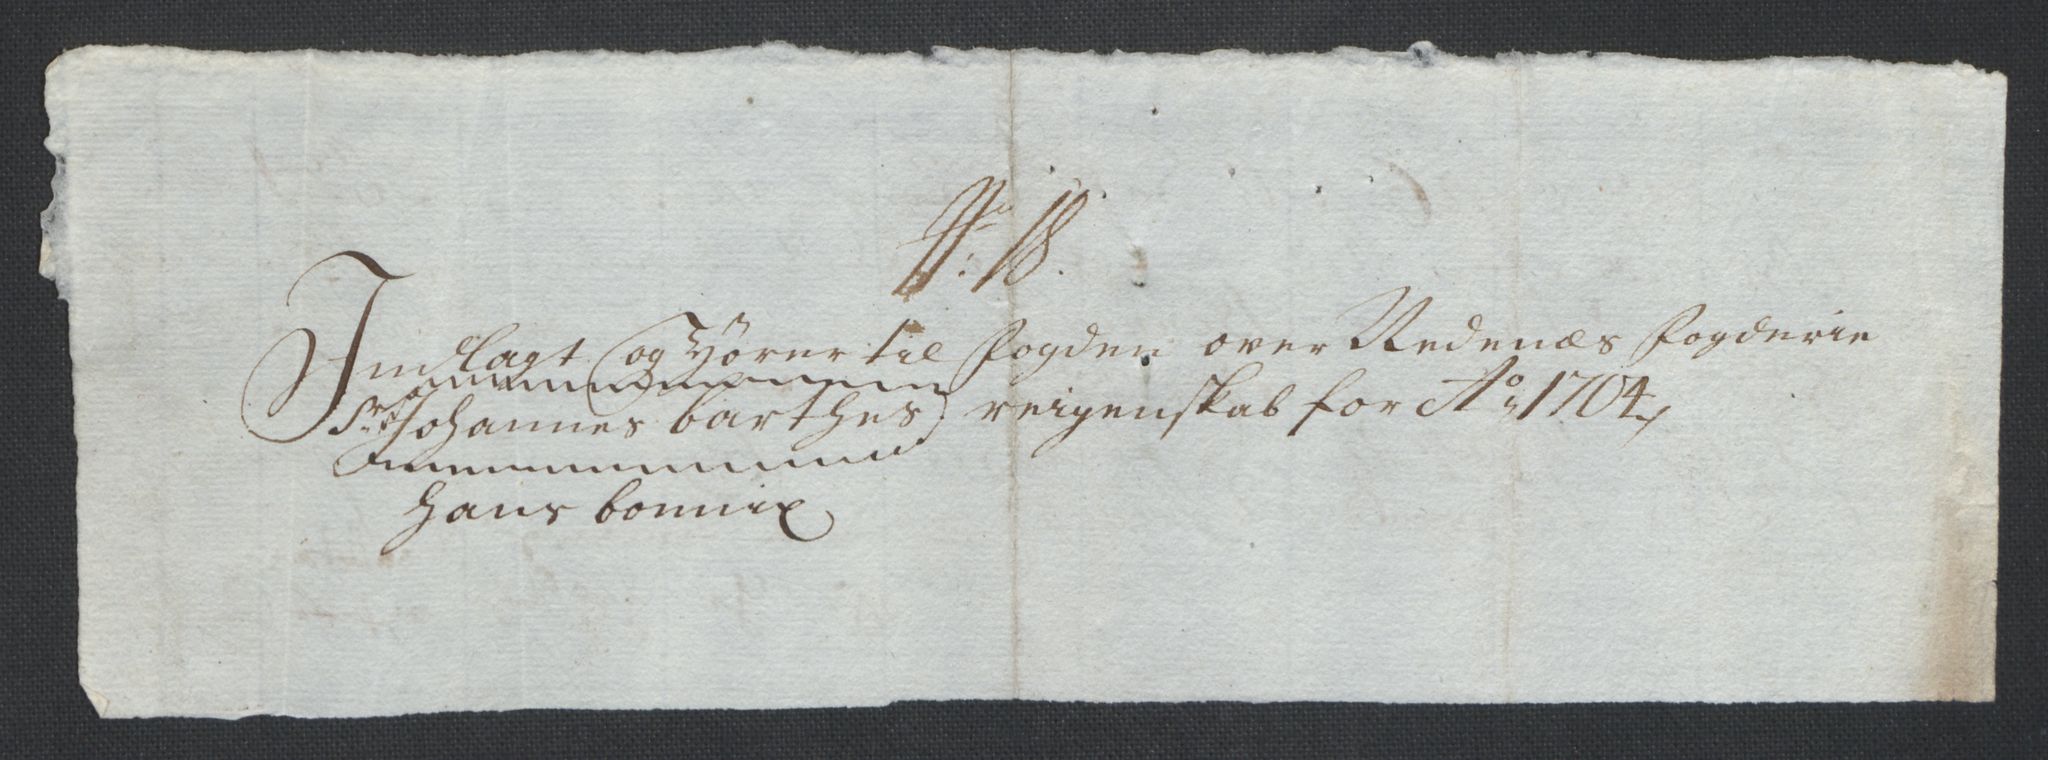 No: 18.
Indlagt og Hører til fogden over Nedenæs fogderie
Sr: Johannes barthes reigenskab for Ao 1704,
Hans bonnix